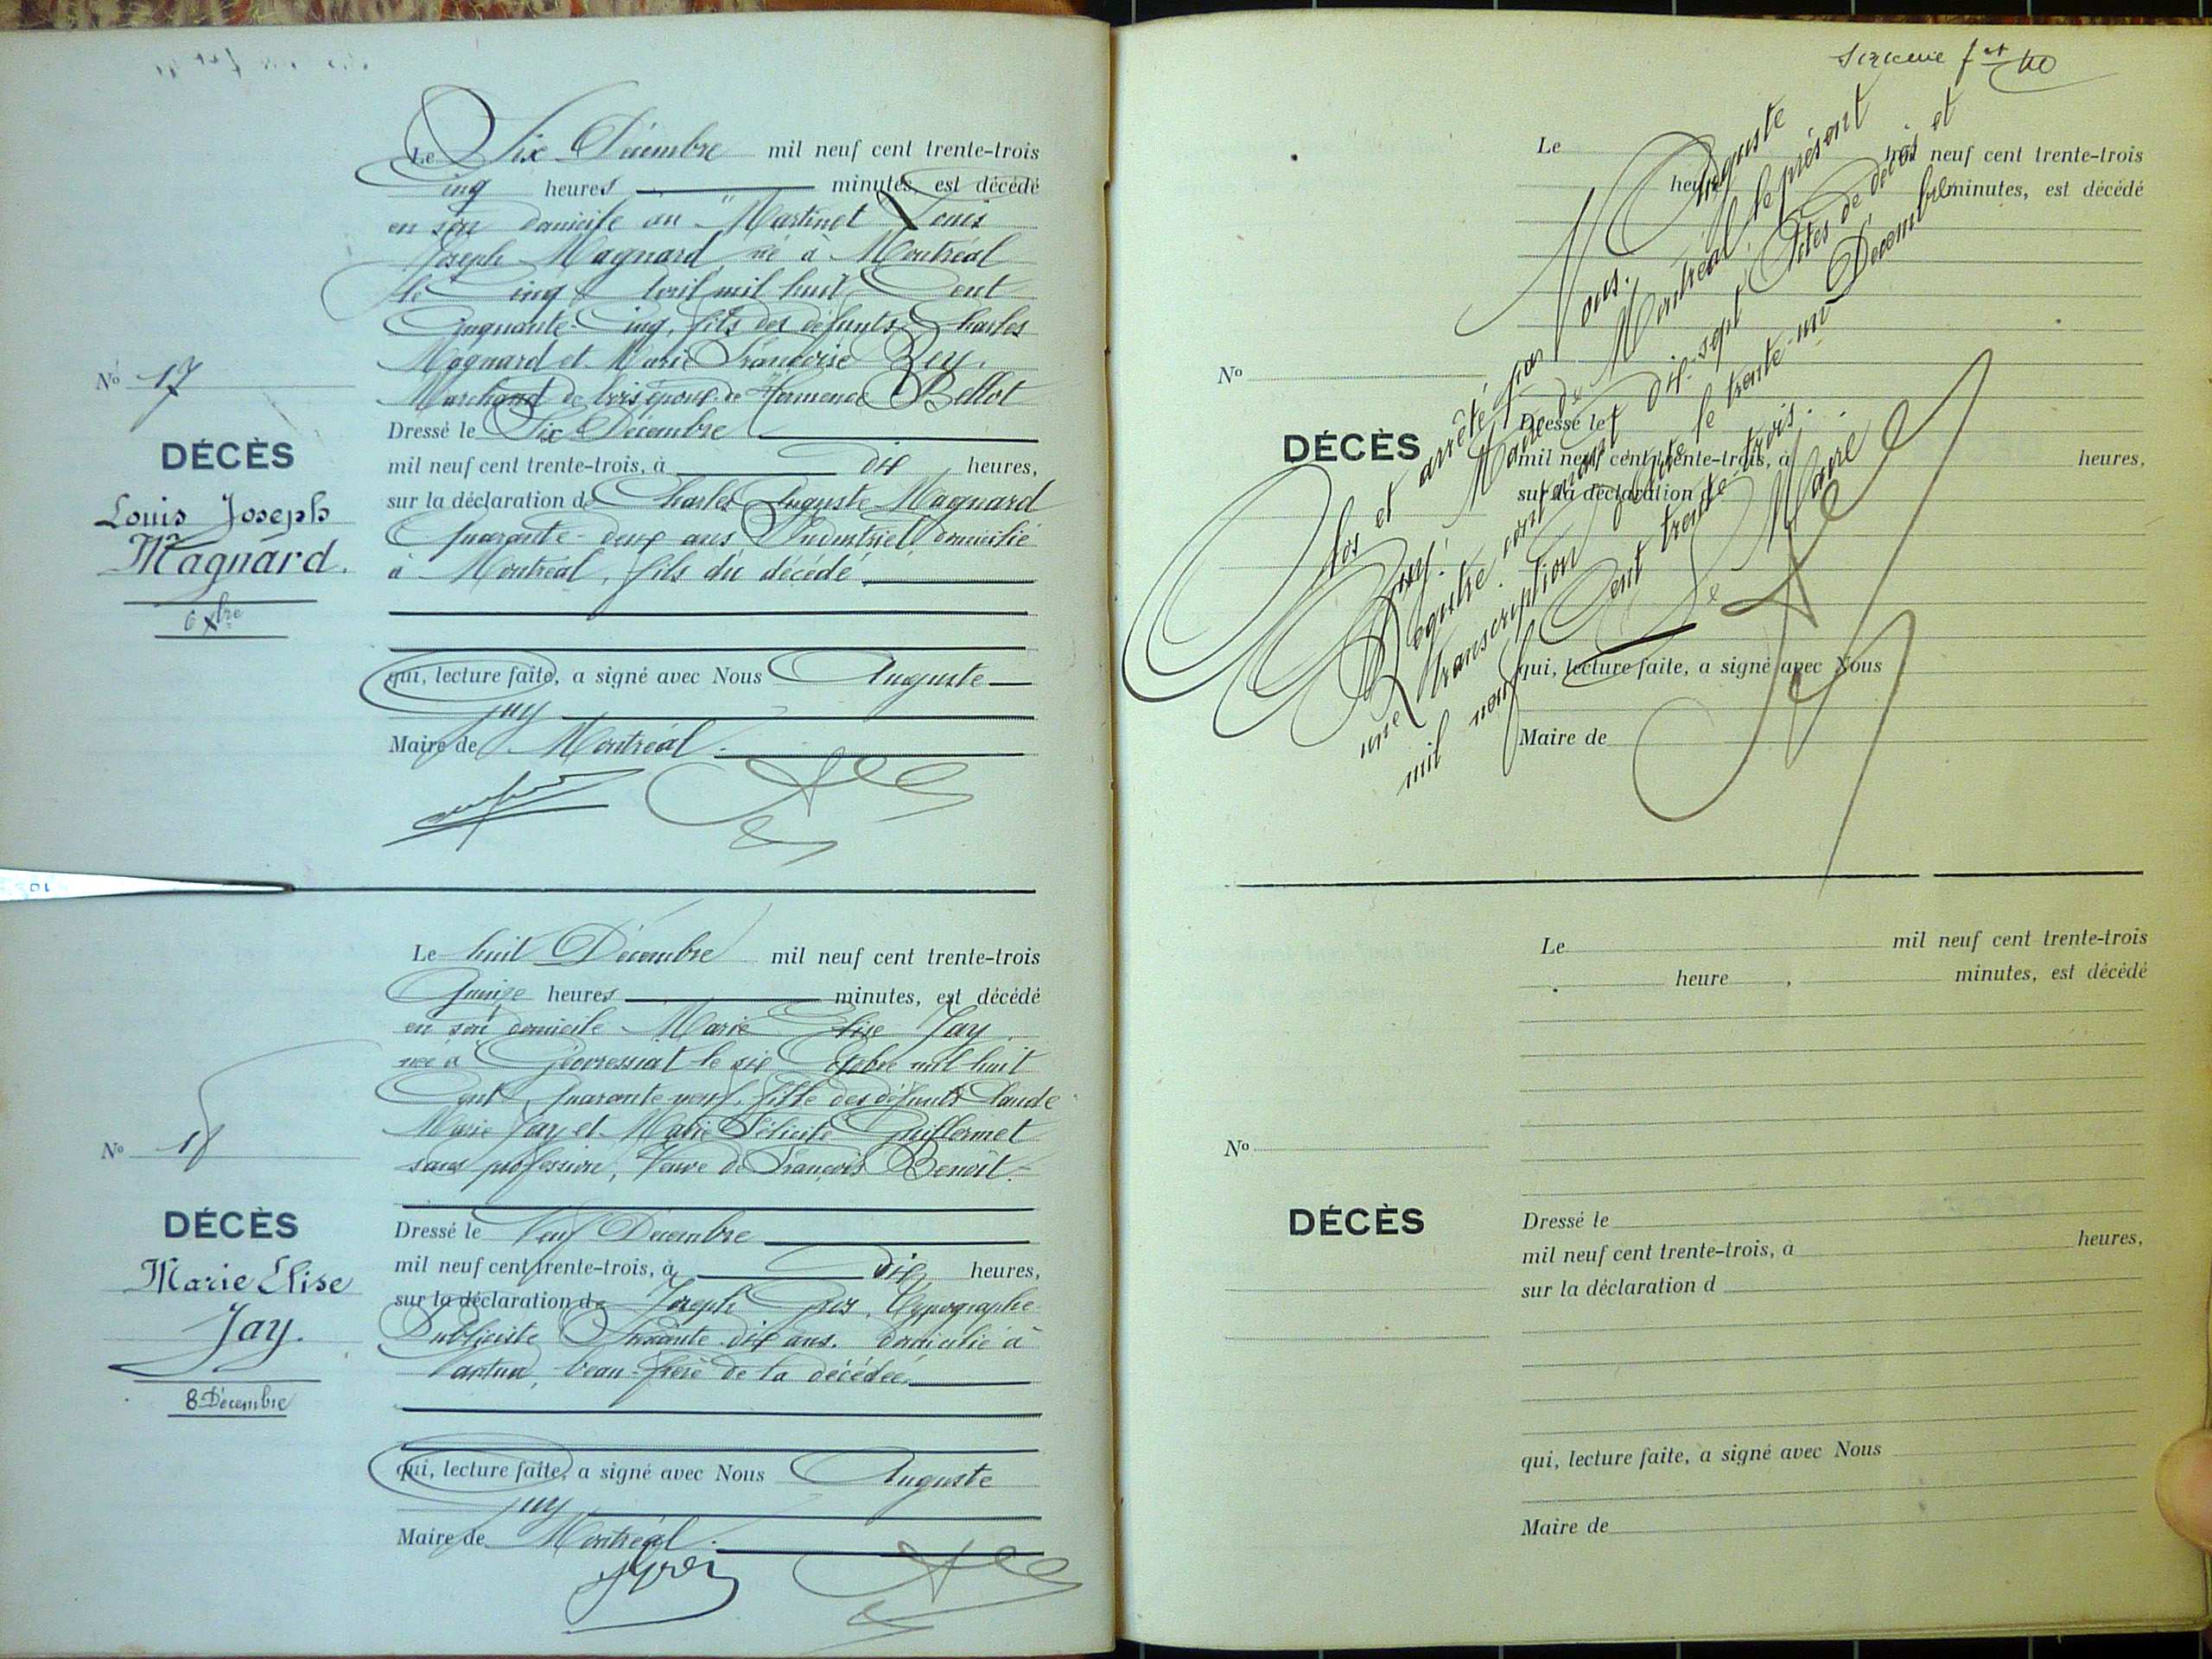 Le Six Décembre mil neuf cent trente-trois
Cinq heures minutes, est décédé
en son domicile au "Martinet Louis
Joseph Magnard né à Montréal
le Cinq Avril mil huit Cent
Cinquante-Cinq, fils des défunts Charles
Magnard et Marie Françoise Rey,
Marchand de bois époux de Hermence Bellot
No 17
DÉCÈS
Louis Joseph
Magnard.
6 Xbre
Dressé le Six Décembre
mil neuf cent trente-trois, à dix heures,
sur la déclaration de Charles Auguste Magnard
Quarante-deux ans, Industriel, domicilié
à Montréal, fils du décédé
qui, lecture faite, a signé avec Nous Auguste
Maire de Montréal.
Le huit Décembre mil neuf cent trente-trois
Quinze heures minutes, est décédé
en son domicile Marie Elise Jay
née à Géovressiat le six Octobre mil huit
Cent quarante neuf, fille des défunts Claude
Marie Jay et Marie Félicité Guillermet
sans profession, Veuve de François Benoît.
No 18
DÉCÈS
Marie Elise
Jay.
8 Décembre
Dressé le Neuf Décembre
mil neuf cent trente-trois, à dix heures,
sur la déclaration de Joseph Typographe
Publiciste Soixante-dix ans, domicilié à
Nantua, beau-frère de la décédée.
qui, lecture faite, a signé avec Nous Auguste
Maire de Montréal.
Le mil neuf cent trente-trois
heure minutes, est décédé
No
DÉCÈS
Dressé le
mil neuf cent trente-trois, à heures,
sur la déclaration d
qui, lecture faite, a signé avec Nous
Maire de
Clos et arrêté par Nous. Auguste
Maire de Montréal, le présent
Registre contenant dix-sept Actes de décès et
une transcription le trente-un Décembre
mil neuf Cent trente-trois.
Le Maire
Le mil neuf cent trente-trois
heure , minutes, est décédé
No
DÉCÈS
Dressé le
mil neuf cent trente-trois, à heures,
sur la déclaration d
qui, lecture faite, a signé avec Nous
Maire de